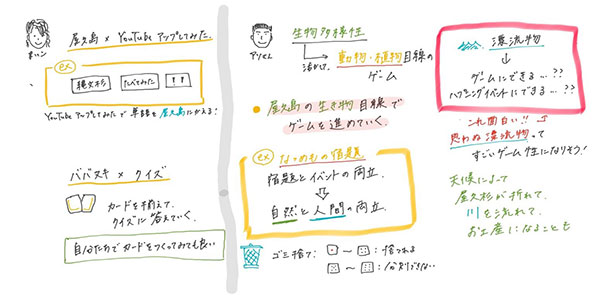 屋久島 × YouTube アップしてみた。
ex
縄文杉
たべてみた
!!
YouTube アップしてみたで 単語を 屋久島にかえる!
ババヌキ × クイズ
カードを揃えて、
クイズに 答えていく。
自分たちで カードを つくってみても良い
生物多様性
活かす。
動物・植物目線の
ゲーム
屋久島の 生き物 目線 で
ゲームを 進めていく。
ex なつやすみの 宿題
宿題と イベントの 両立。
自然と 人間の 両立。
ゴミ捨て:
~
: 捨てれる
~
: できない
漂流物
ゲームにできる…??
ハプニングイベントにできる…??
これ面白い!!
思わぬ 漂流物って
すごい ゲーム 性になりそう!
天候によって
屋久杉が 折れて、
川を 流れて、
お土産に なることも